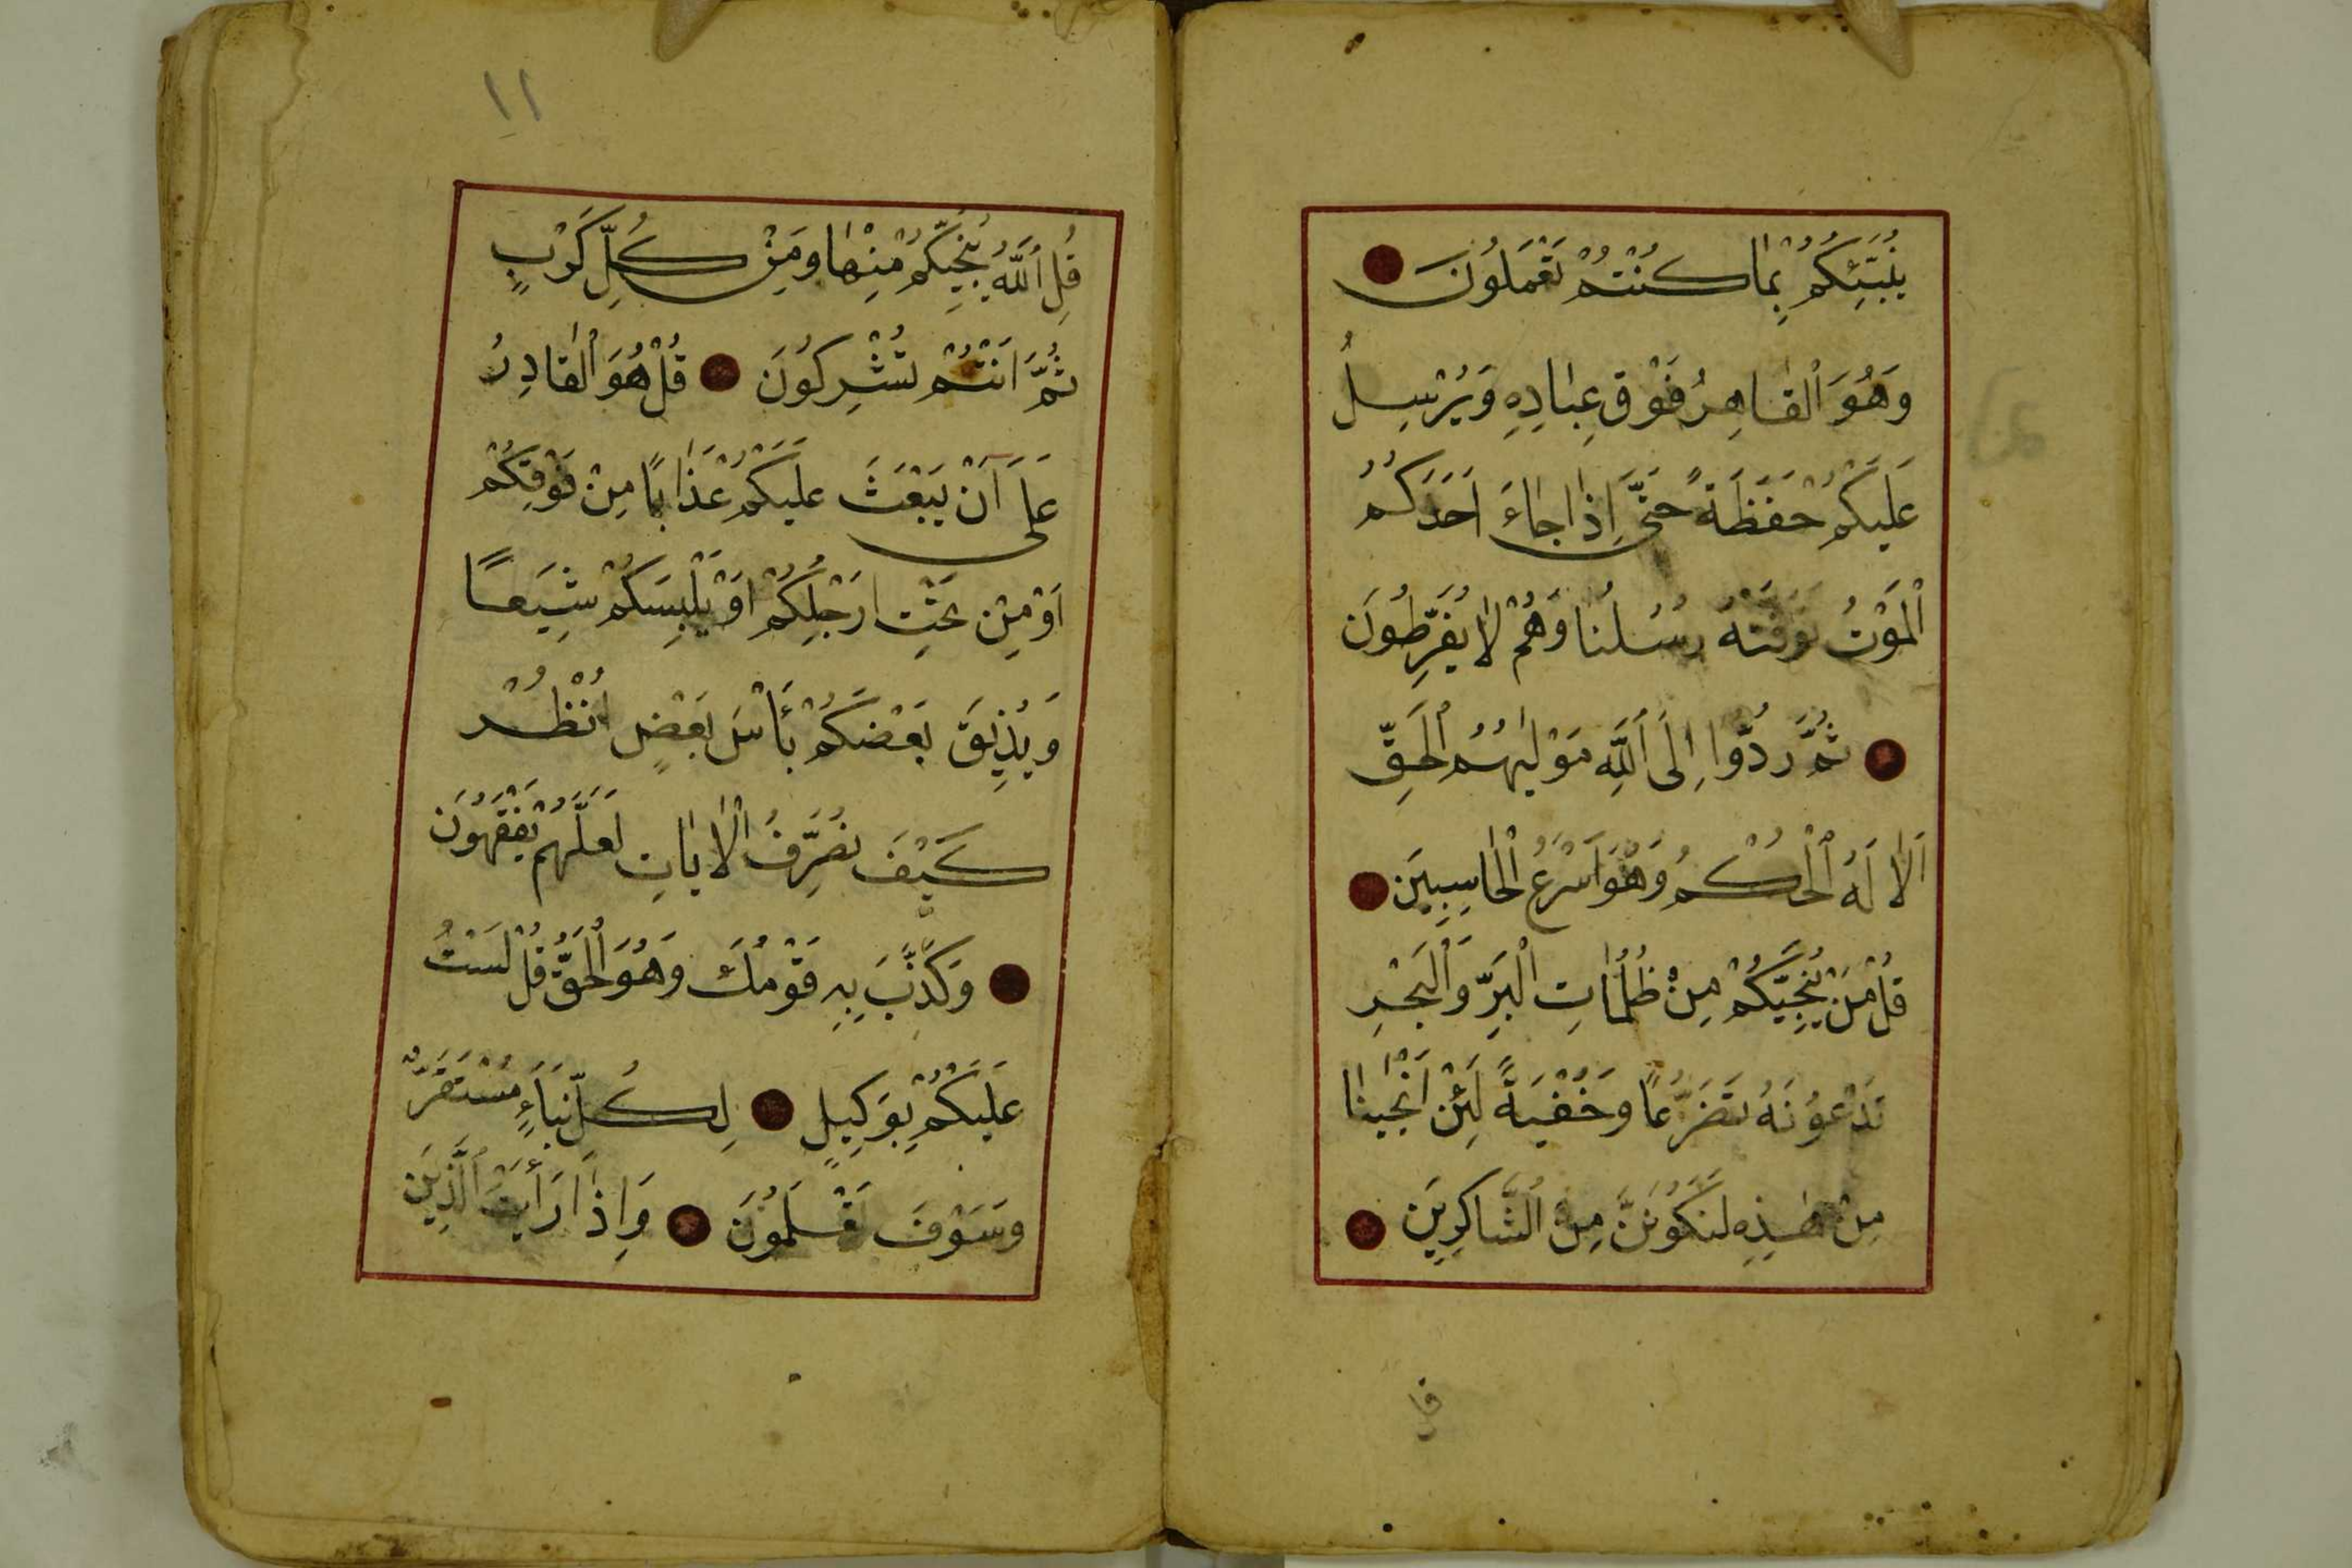 يُنَبِّئُكُمْ بِمَا كُنْتُمْ تَعْمَلُونَ
وَهُوَ ٱلْقَاهِرُ فَوْقَ عِبَادِهِ وَيُرْسِلُ
عَلَيْكُمْ حَفَظَةً حَتَّى إِذَا جَاءَ اَحَدَكُمُ
ٱلْمَوْتُ تَوَفَّتْهُ رُسُلُنَا وَهُمْ لَا يُفَرِّطُونَ
ثُمَّ رُدُّوا إِلَى ٱللَّهِ مَوْلٰيهُمُ ٱلْحَقِّ
اَلَا لَهُ ٱلْحُكْمُ وَهُوَ اَسْرَعُ ٱلْحَاسِبِينَ
قُلْ مَنْ يُنَجِّيكُمْ مِنْ ظُلُمَاتِ ٱلْبَرِّ وَٱلْبَحْرِ
تَدْعُونَهُ تَضَرُّعًا وَخُفْيَةً لَئِنْ اَنْجَيْنَا
مِنْ هٰذِهِ لَنَكُونَنَّ مِنَ ٱلشَّاكِرِينَ
قل
١١
قُلِ ٱللَّهُ يُنَجِّيكُمْ مِنْهَا وَمِنْ كُلِّ كَرْبٍ
ثُمَّ اَنْتُمْ تُشْرِكُونَ قُلْ هُوَ ٱلْقَادِرُ
عَلَى اَنْ يَبْعَثَ عَلَيْكُمْ عَذَابًا مِنْ فَوْقِكُمْ
اَوْ مِنْ تَحْتِ اَرْجُلِكُمْ اَوْ يَلْبِسَكُمْ شِيَعًا
وَيُذِيقَ بَعْضَكُمْ بَأْسَ بَعْضٍ اُنْظُرْ
كَيْفَ نُصَرِّفُ ٱلْاٰيَاتِ لَعَلَّهُمْ يَفْقَهُونَ
وَكَذَّبَ بِهِ قَوْمُكَ وَهُوَ ٱلْحَقُّ قُلْ لَسْتُ
عَلَيْكُمْ بِوَكِيلٍ لِكُلِّ نَبَاءٍ مُسْتَقَرٌّ
وَسَوْفَ تَعْلَمُونَ وَاِذَا رَأَيْتَ ٱلَّذِينَ